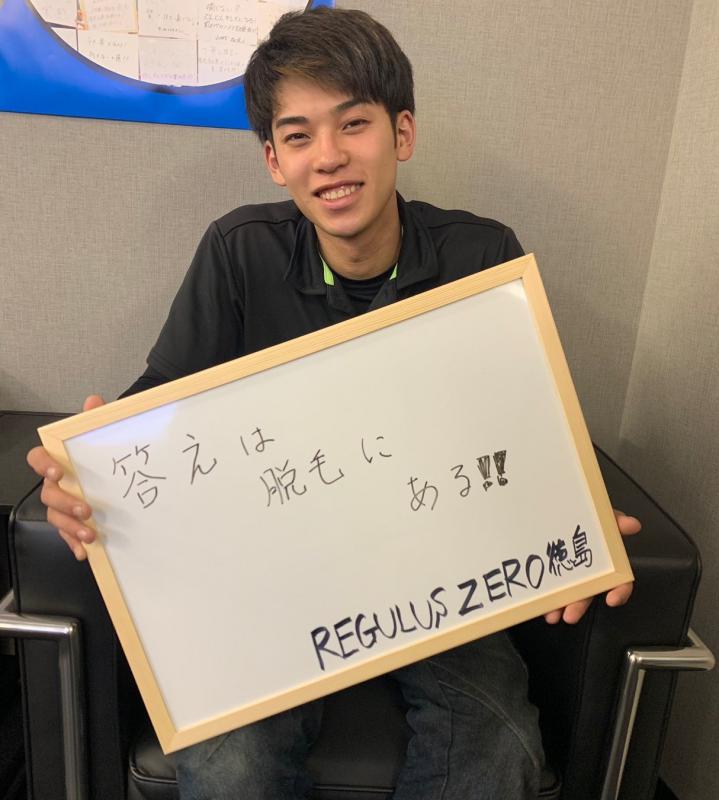 答えは
脱毛に
ある!!
REGULUS ZERO 徳島